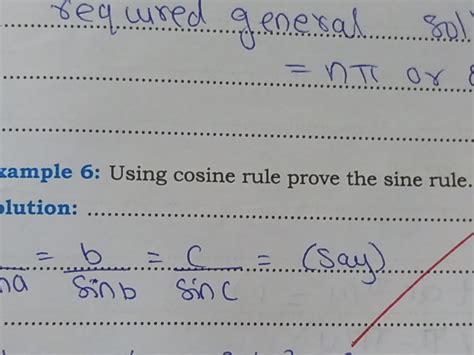 required general sol
= nπ or
xample 6: Using cosine rule prove the sine rule.
olution:
na = b/sin b = c/sin c = (say)